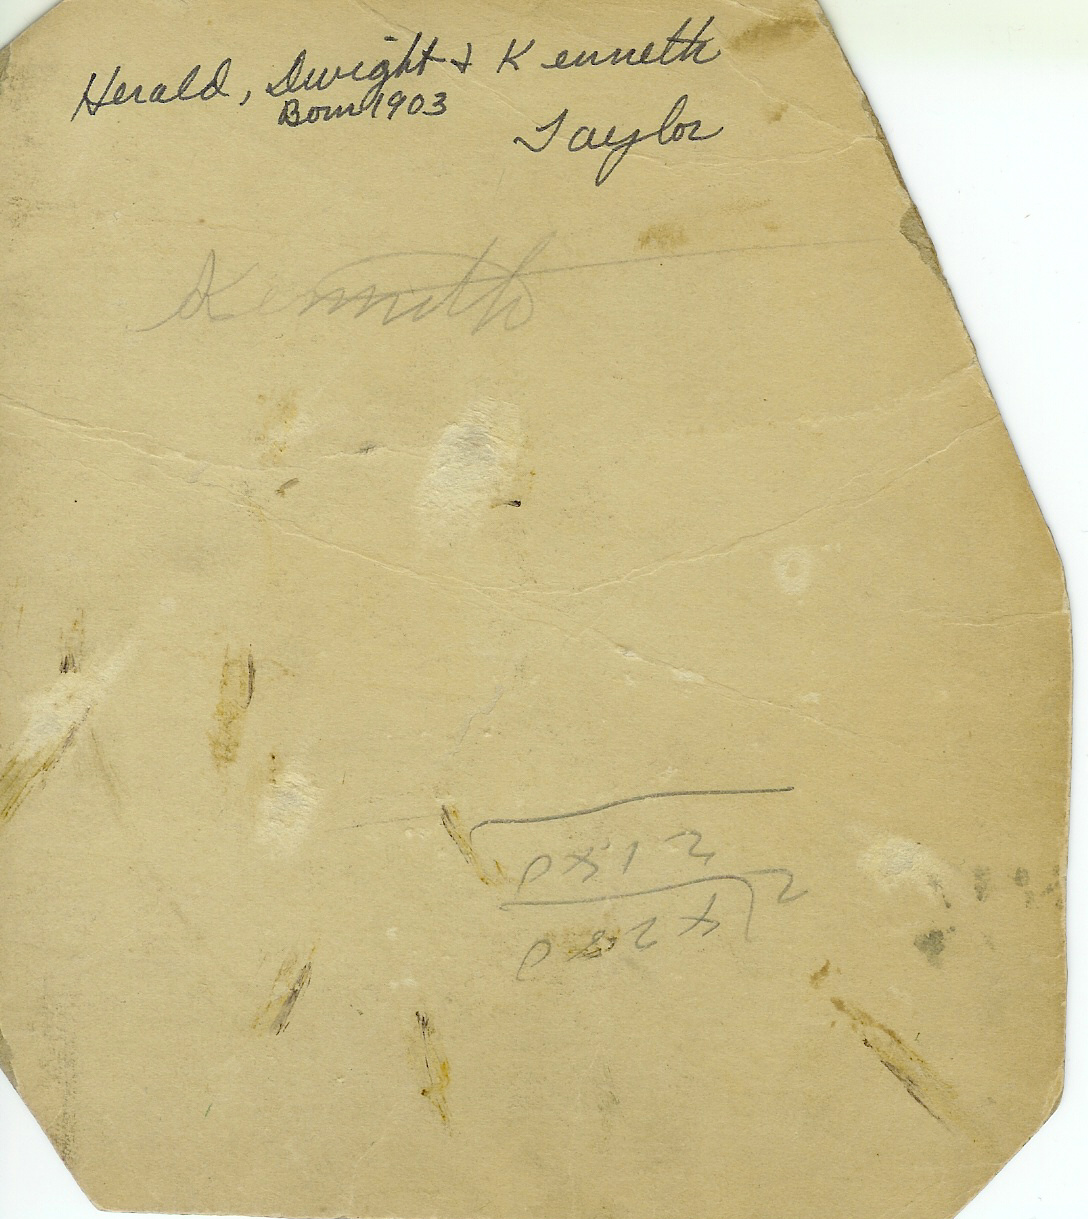 Herald, Dwight & Kenneth
Born 1903
Taylor
Kenneth